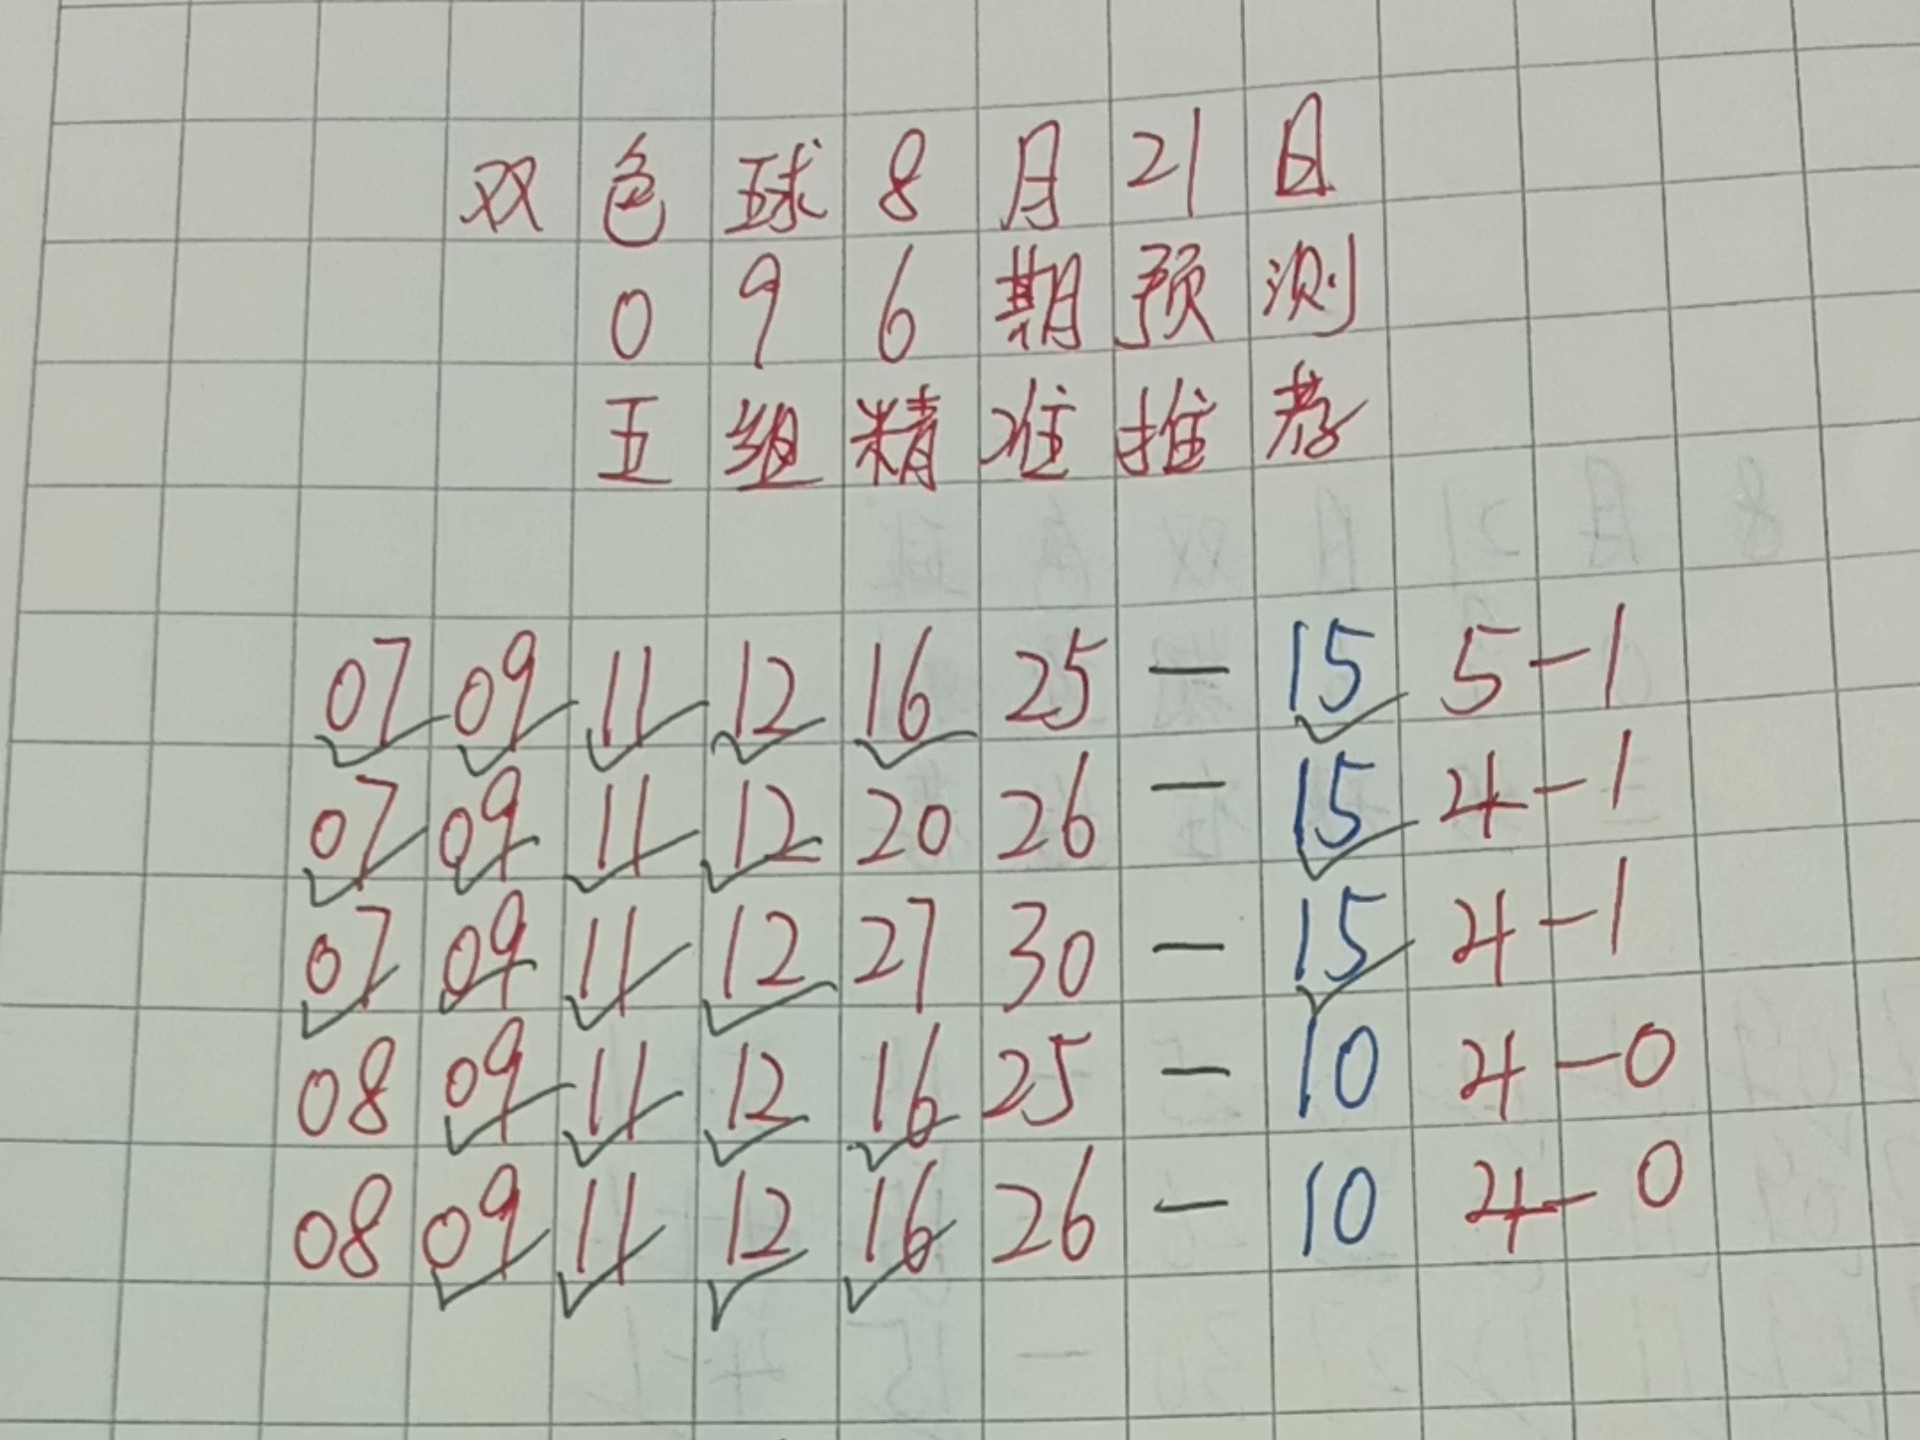 双色球8月21日
096期预测
五组精准推荐
07 09 11 12 16 25 — 15 5-1
07 09 11 12 20 26 — 15 4-1
07 09 11 12 27 30 — 15 4-1
08 09 11 12 16 25 — 10 4-0
08 09 11 12 16 26 — 10 4-0